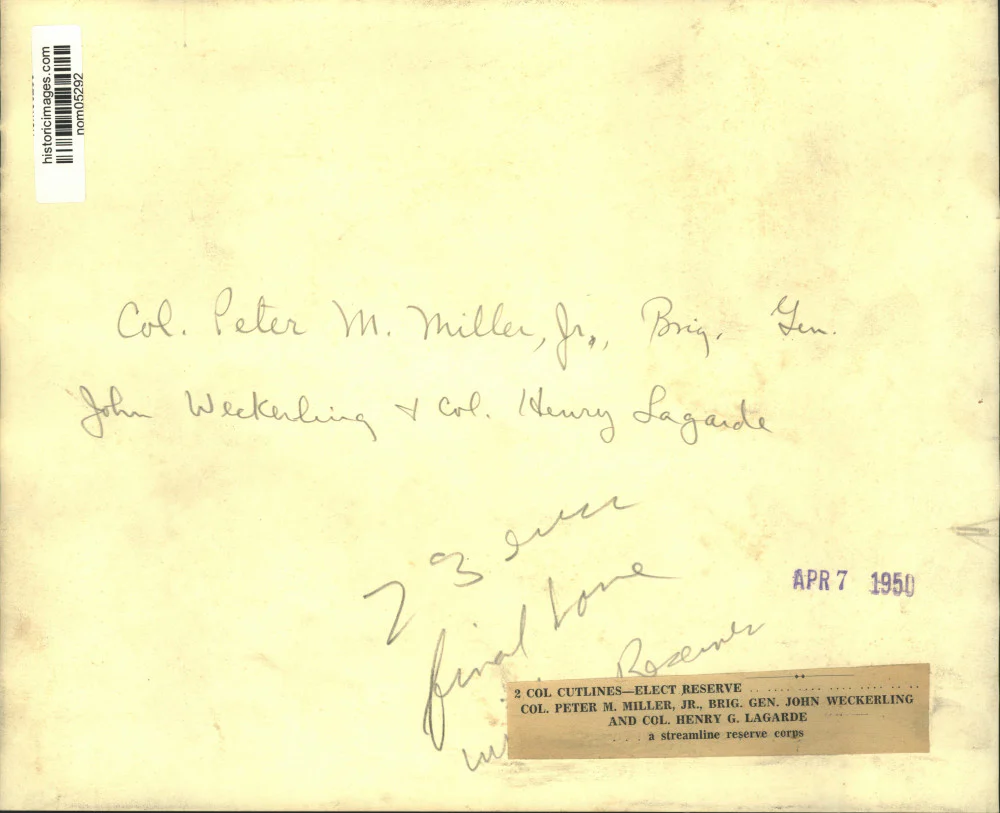 historicimages.com
nom05292
Col. Peter M. Miller, Jr., Brig. Gen.
John Weckerling & Col. Henry Lagarde
final
APR 7 1950
2 COL CUTLINES—ELECT RESERVE
COL. PETER M. MILLER, JR., BRIG. GEN. JOHN WECKERLING
AND COL. HENRY G. LAGARDE
a streamline reserve corps